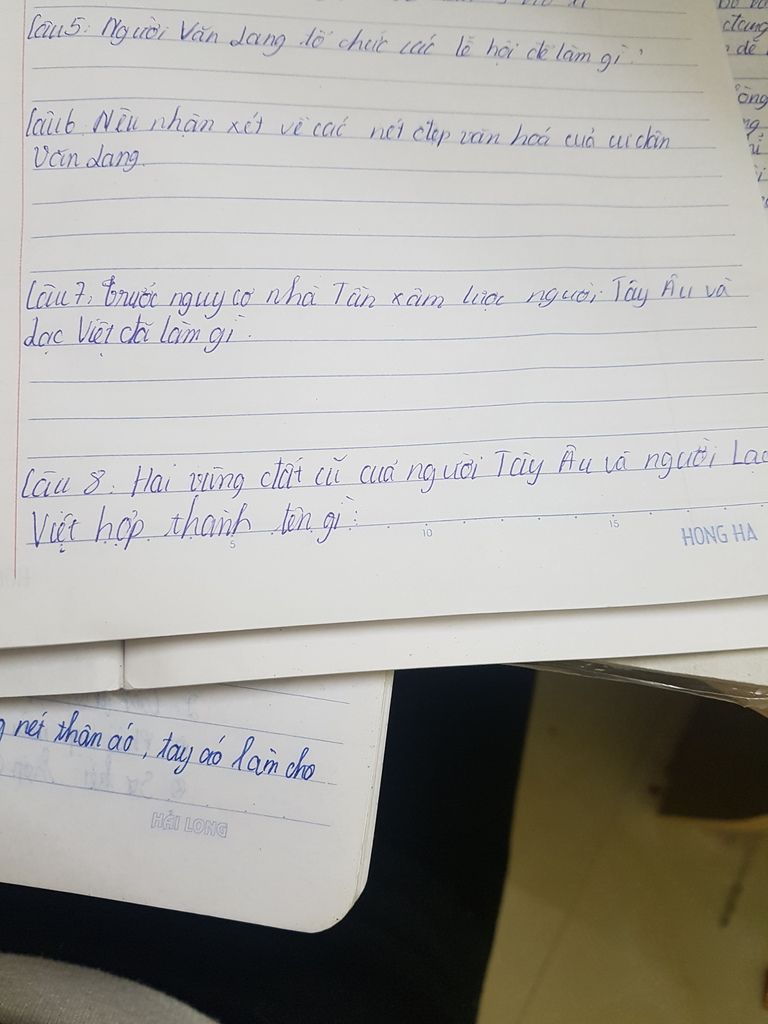 Câu 5: Người Văn Lang tổ chức các lễ hội để làm gì?
Câu 6 Nêu nhận xét về các nét đẹp văn hoá cuả cư dân
Văn Lang.
Câu 7: Trước nguy cơ nhà Tần xâm lược người Tây Âu và
Lạc Việt đã làm gì.
Câu 8: Hai vùng đất cũ cuả người Tây Âu và người Lạc
Việt hợp thành tên gì:
5 10 15
HONG HA
nét thân áo, tay áo làm cho
HẢI LONG